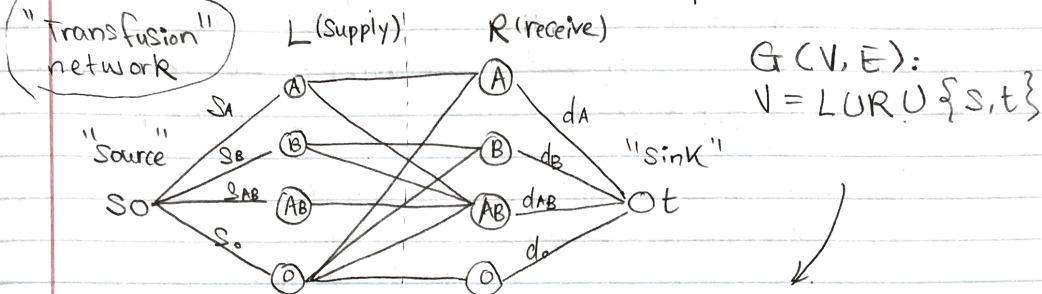 "Transfusion" network
L (supply)
R (receive)
G (V, E):
V = L U R U {s,t}
"source"
"sink"
S
t
SA
SB
SAB
So
A
B
AB
O
A
B
AB
O
dA
dB
dAB
do